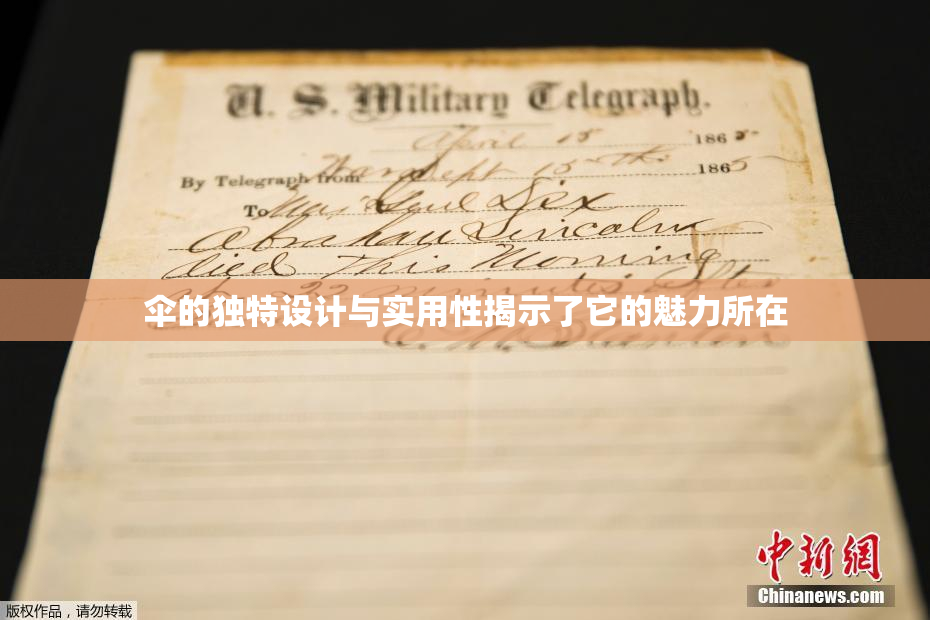 U. S. Military Telegraph.
April 15 1865
By Telegraph from War Dept 15th 1865
To Maj Genl Dix
Abraham Lincoln
died This Morning
at 22 minutes after
伞的独特设计与实用性揭示了它的魅力所在
中新網
Chinanews.com
版权作品，请勿转载